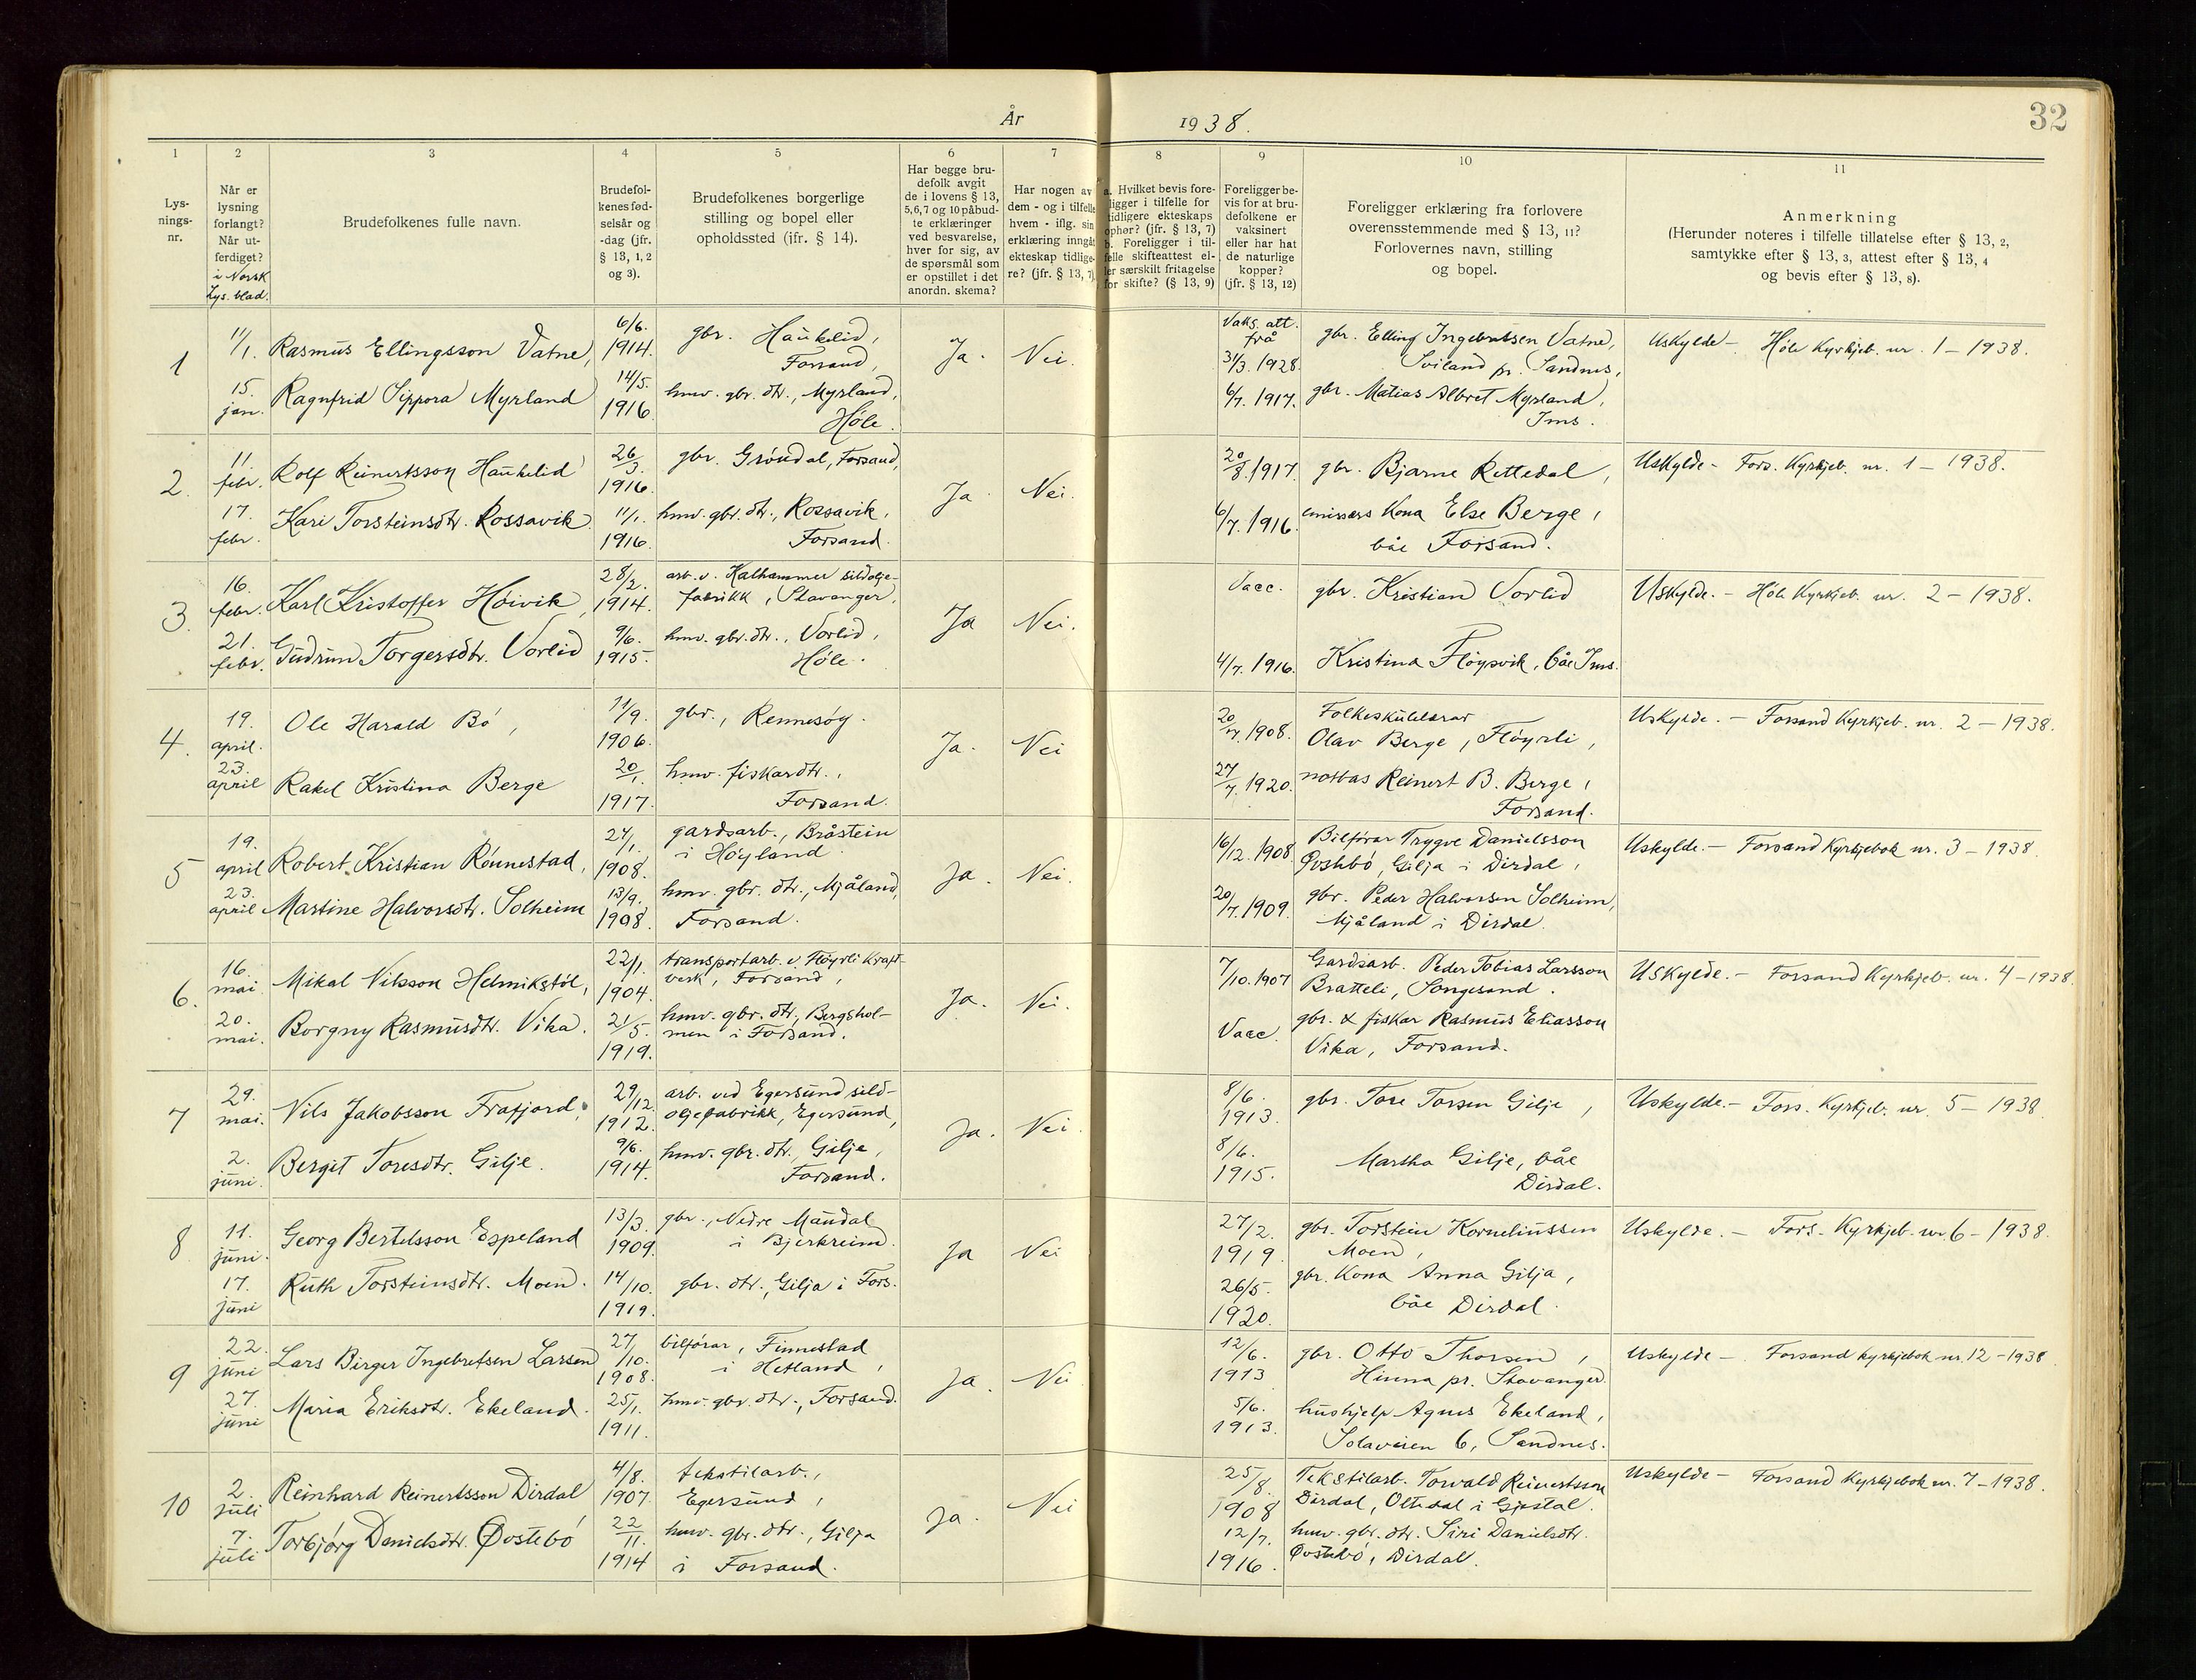 År
1938.
32
1
2
3
4
5
6
7
8
9
10
11
Lys-
nings-
nr.
Når er
lysning
forlangt?
Når ut-
ferdiget?
i Norsk
Lys. blad.
Brudefolkenes fulle navn.
Brudefol-
kenes fød-
selsår og
-dag (jfr.
§ 13, 1, 2
og 3).
Brudefolkenes borgerlige
stilling og bopel eller
opholdssted (ifr. § 14).
Har begge bru-
defolk avgit
de i lovens § 13,
5,6,7 og 10 påbud-
te erklæringer
ved besvarelse,
hver for sig, av
de spørsmål som
er opstillet i det
anordn. skema?
Har nogen av
dem - og i tilfelle
hvem - iflg. sin
erklæring inngåt
ekteskap tidlige-
re? (jfr. § 13, 7)
a. Hvilket bevis fore-
ligger i tilfelle for
tidligere ekteskaps
ophør? (jfr. § 13, 7)
b. Foreligger i til-
felle skifteattest el-
ler særskilt fritagelse
for skifte? (§ 13, 9)
Foreligger be-
vis for at bru-
defolkene er
vaksinert
eller har hat
de naturlige
kopper?
(jfr. § 13, 12)
Foreligger erklæring fra forlovere
overensstemmende med § 13, 11?
Forlovernes navn, stilling
og bopel.
Anmerkning
(Herunder noteres i tilfelle tillatelse efter § 13, 2,
samtykke efter § 13, 3, attest efter § 13, 4
og bevis efter § 13, 8).
1
11/1.
15.
jan.
Rasmus Ellingsson Vatne,
Ragnfrid Sippora Myrland
6/6.
1914.
14/5.
1916
gbr. Haukelid,
Forsand,
hmv. gbr. dtr., Myrland,
Høle.
Ja.
Nei.
Vaks. att.
frå
31/3. 1928.
6/7. 1917.
gbr. Elling Ingebretsen Vatne,
Sviland pr. Sandnes,
gbr. Matias Albret Myrland,
Ims.
Uskylde - Høle Kyrkjeb. nr. 1 - 1938.
2.
11.
febr.
17.
febr.
Rolf Reinertsson Haukelid
Kari Torsteinsdtr. Rossavik.
26/3.
1916.
11/1.
1916.
gbr. Grøndal, Forsand,
hmv. gbr. dtr., Rossavik,
Forsand.
Ja.
Nei.
20/8. 1917
6/7. 1916.
gbr. Bjarne Rettedal,
emissærs Kona Else Berge,
båe Forsand.
Uskylde - Fors. Kyrkjeb. nr. 1 - 1938.
3.
16.
febr.
21.
febr.
Karl Kristoffer Høivik,
Gudrun Torgersdtr. Vorlid
28/2.
1914.
9/6.
1915.
arb. v. Kalhammer sildolje-
fabrikk, Stavanger,
hmv. gbr. dtr., Vorlid,
Høle.
Ja
Nei.
Vacc.
4/7. 1916.
gbr. Kristian Vorlid
Kristina Fløysvik, båe Ims.
Uskylde. - Høle Kyrkjeb. nr. 2 - 1938.
4.
19.
april.
23.
april
Ole Harald Bø,
Rakel Kristina Berge
11/9.
1906.
20/1.
1917.
gbr., Rennesøy.
hmv. fiskardtr.,
Forsand.
Ja.
Nei
20/7. 1908.
27/7. 1920.
Folkeskulelærar
Olav Berge, Fløyrli,
notbas Reinert B. Berge,
Forsand.
Uskylde. - Forsand Kyrkjeb. nr. 2 - 1938.
5
19.
april
23.
april
Robert Kristian Rønnestad,
Martine Halvorsdtr. Solheim
27/1.
1908.
13/9.
1908.
gardsarb., Bråstein
i Høyland.
hmv. gbr. dtr., Mjåland,
Forsand.
Ja.
Nei.
16/12. 1908
20/7. 1909.
Bilførar Trygve Danielsson
Øvstebø, Gilja i Dirdal,
gbr. Peder Halvorsen Solheim,
Mjåland i Dirdal.
Uskylde. - Forsand Kyrkjebok nr. 3 - 1938.
6.
16.
mai
20.
mai.
Mikal Nilsson Helmikstøl,
Borgny Rasmusdtr. Vika.
22/1.
1904.
21/5.
1919.
transportarb. v. Fløyrli Kraft-
verk, Forsand,
hmv. gbr. dtr., Bergshol-
men i Forsand.
Ja.
Nei.
7/10. 1907
Vacc.
Gardsarb. Peder Tobias Larsson
Bratteli, Songesand.
gbr. & fiskar Rasmus Eliasson
Vika, Forsand.
Uskylde. - Forsand Kyrkjeb. nr. 4 - 1938.
7
29.
mai.
2.
juni.
Nils Jakobsson Frafjord,
Bergit Toresdtr. Gilje.
29/12.
1912.
9/6.
1914.
arb. ved Egersund sild-
oljefabrikk, Egersund,
hmv. gbr. dtr., Gilje,
Forsand.
Ja.
Nei.
8/6.
1913.
8/6.
1915.
gbr. Tore Torsen Gilje,
Martha Gilje, båe
Dirdal.
Uskylde. - Fors. Kyrkjeb. nr. 5 - 1938.
8
11.
juni.
17.
juni
Georg Bertelsson Espeland
Ruth Torsteinsdtr. Moen.
13/3.
1909.
14/10.
1919.
gbr., Nedre Maudal
i Bjerkreim.
gbr. dtr., Gilja i Fors.
Ja
Nei
27/2.
1919
26/5.
1920.
gbr. Torstein Korneliussen
Moen,
gbr. Kona Anna Gilja,
båe Dirdal.
Uskylde. - Fors. Kyrkjeb. nr 6 - 1938.
9
22.
juni
27.
juni
Lars Birger Ingebretsen Larsen
Maria Eriksdtr. Ekeland.
27/10.
1908.
25/1.
1911.
bilførar, Finnestad
i Hetland,
hmv. gbr. dtr., Forsand.
Ja.
Nei
12/6.
1913
5/6.
1913.
gbr. Otto Thorsen,
Hinna pr. Stavanger.
hushjelp Agnes Ekeland,
Solaveien 6, Sandnes.
Uskylde - Forsand kyrkjebok nr. 12 - 1938.
10
2.
juli
7.
juli
Reinhard Reinertsson Dirdal
Torbjørg Danielsdtr. Øvstebø
4/8.
1907.
22/11.
1914
tekstilarb.,
Egersund,
hmv. gbr. dtr., Gilja
i Forsand.
Ja.
Nei
25/8.
1908
12/7.
1916.
Tekstilarb. Torvald Reinertsson
Dirdal, Oltedal i Gjestal.
hmv. gbr. dtr. Siri Danielsdtr.
Øvstebø, Dirdal.
Uskylde - Forsand Kyrkjebok nr. 7 - 1938.